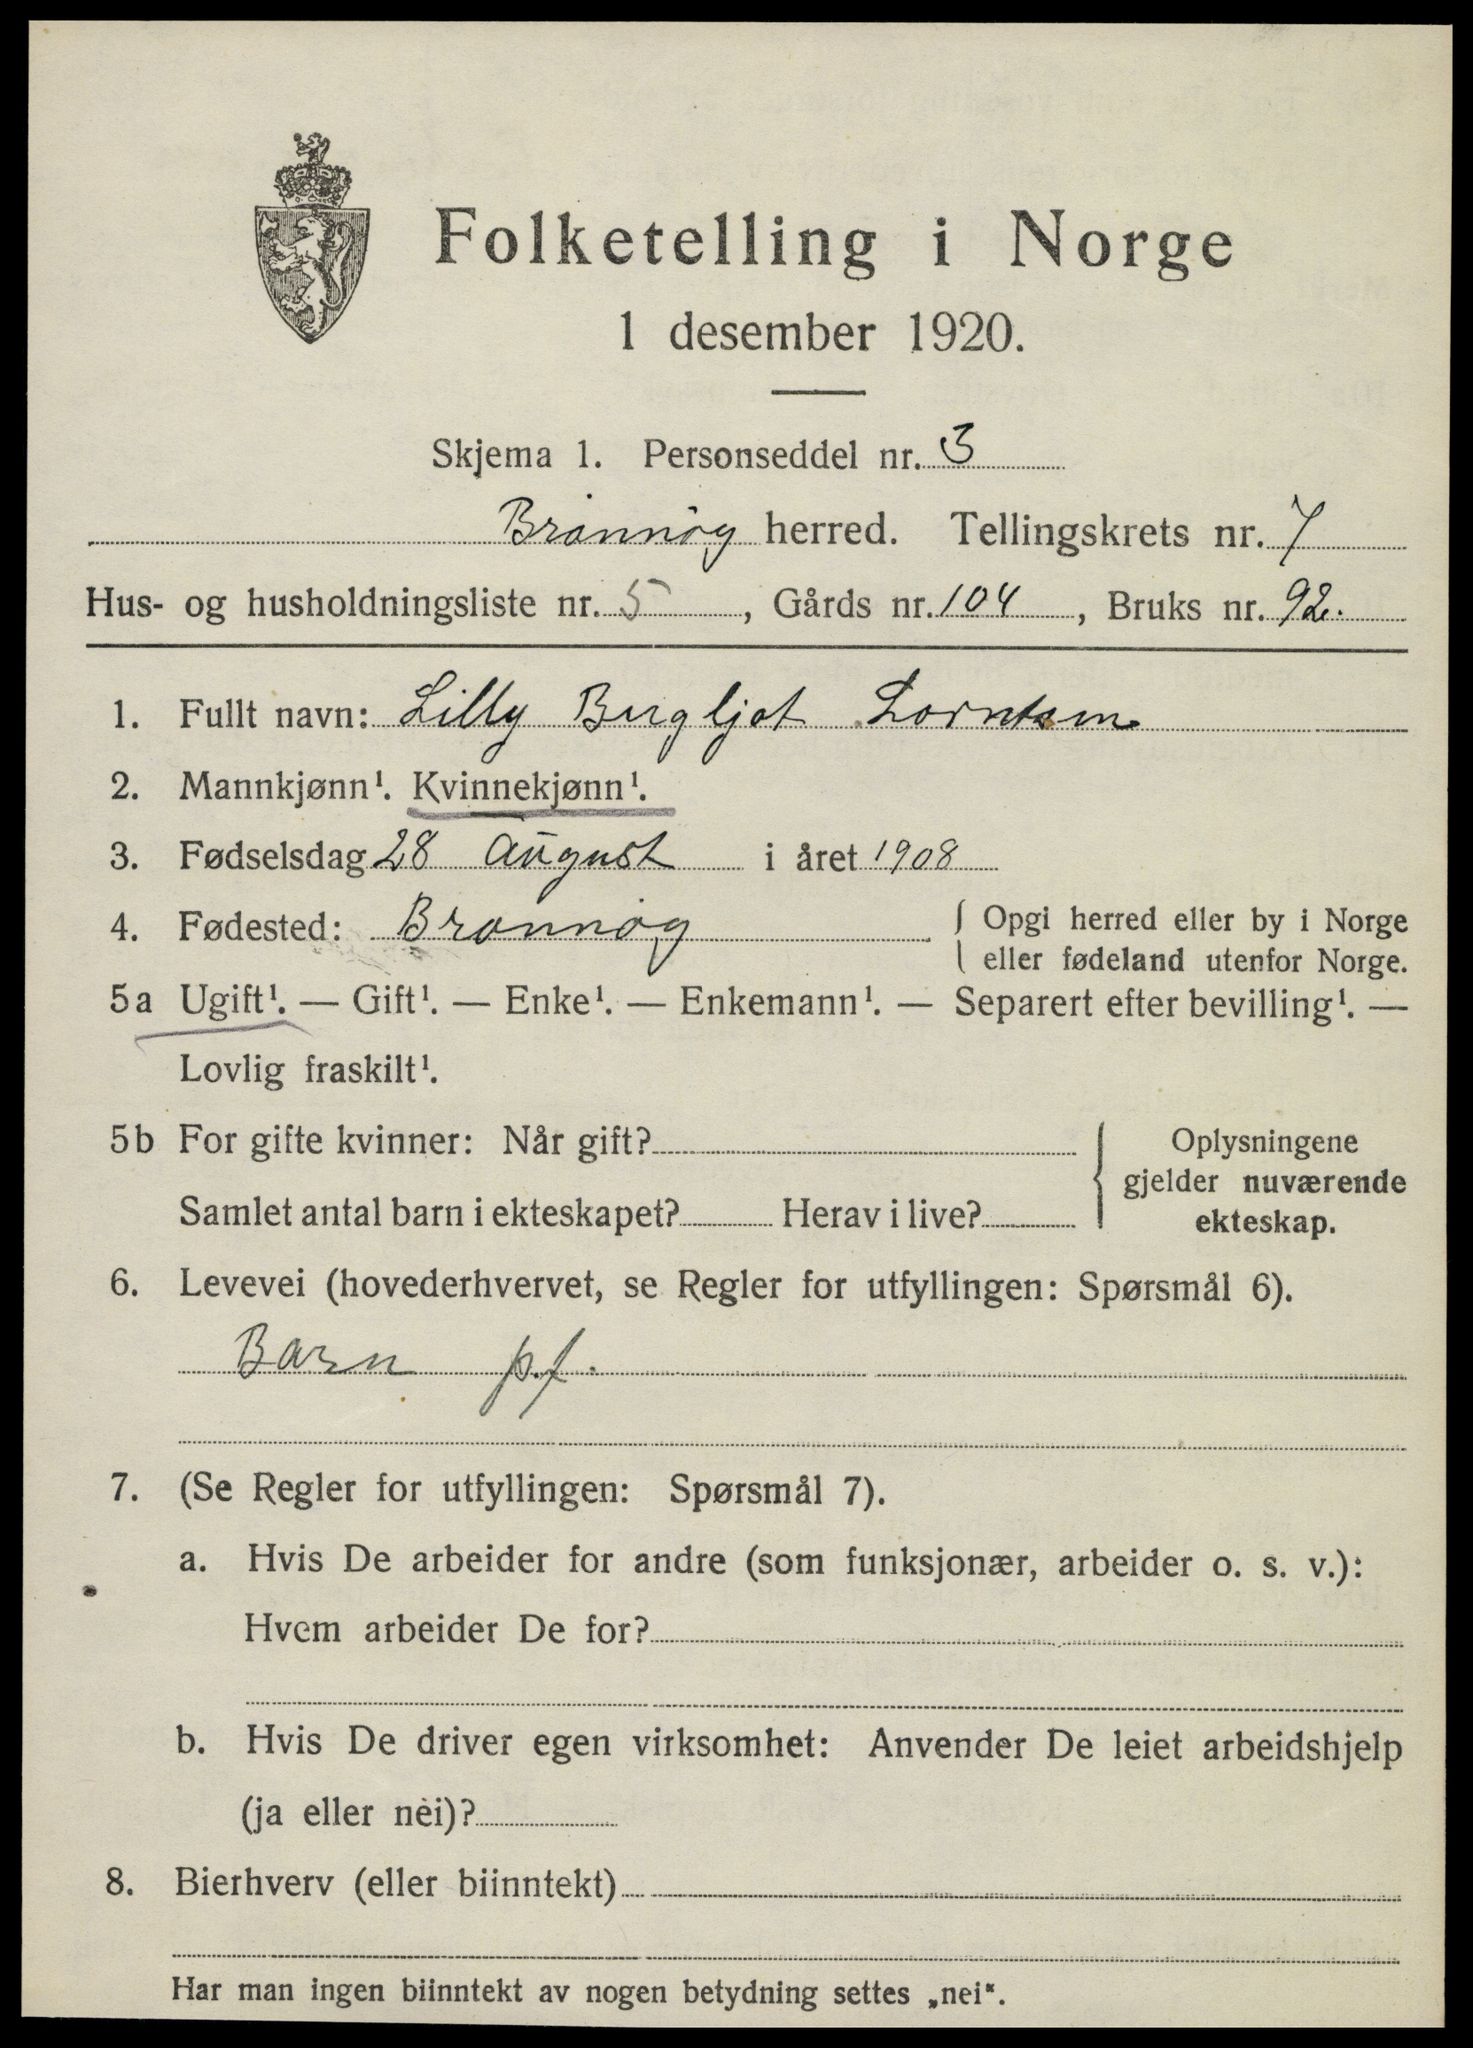 Folketelling i Norge
1 desember 1920.
Skjema 1. Personseddel nr. 3
Brønnøy herred. Tellingskrets nr. 7
Hus- og husholdningsliste nr. 5, Gårds nr. 104, Bruks nr. 92.
1. Fullt navn: Lilly Bergljot Lorntsen
2. Mannkjønn¹. Kvinnekjønn¹.
3. Fødselsdag 28 August i året 1908
4. Fødested: Brønnøy { Opgi herred eller by i Norge
eller fødeland utenfor Norge.
5a Ugift¹. — Gift¹. — Enke¹. — Enkemann¹. — Separert efter bevilling¹. —
Lovlig fraskilt¹.
5b For gifte kvinner: Når gift? { Oplysningene
gjelder nuværende
Samlet antal barn i ekteskapet? Herav i live? ekteskap.
6. Levevei (hovederhvervet, se Regler for utfyllingen: Spørsmål 6).
Barn p.f.
7. (Se Regler for utfyllingen: Spørsmål 7).
a. Hvis De arbeider for andre (som funksjonær, arbeider o. s. v.):
Hvem arbeider De for?
b. Hvis De driver egen virksomhet: Anvender De leiet arbeidshjelp
(ja eller nei)?
8. Bierhverv (eller biinntekt)
Har man ingen biinntekt av nogen betydning settes „nei“.